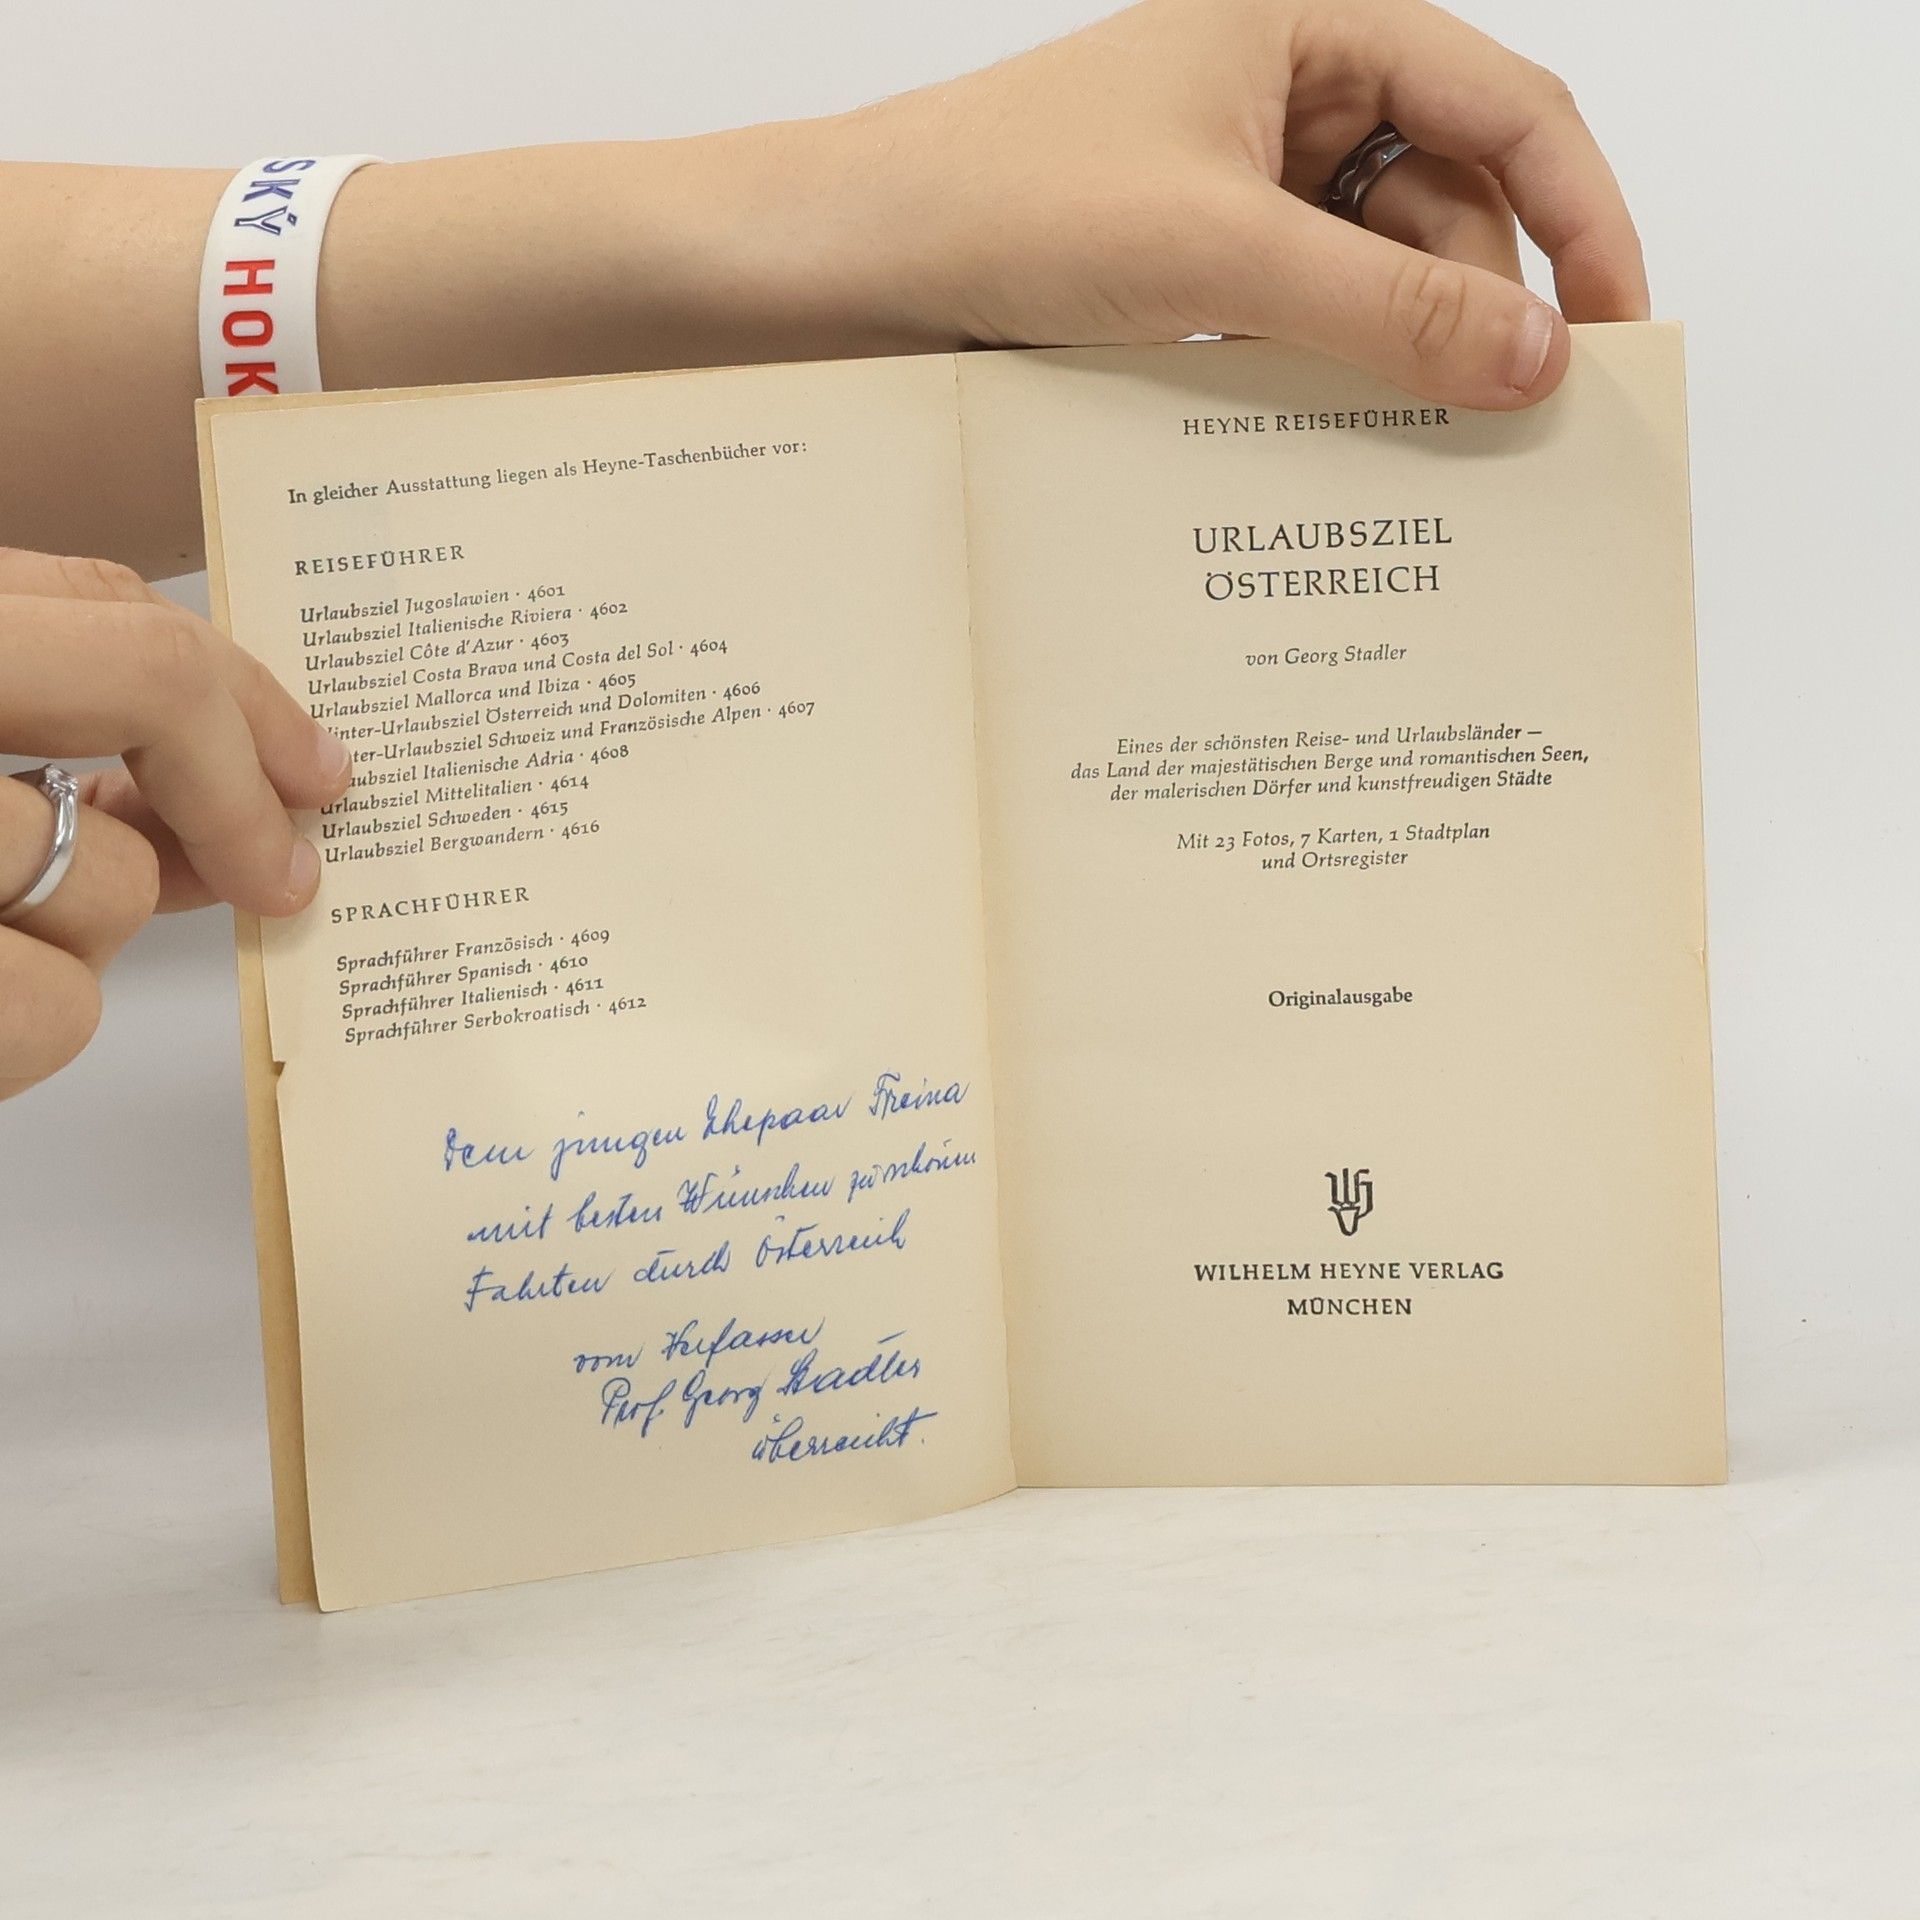 SKÝ HOK
In gleicher Ausstattung liegen als Heyne-Taschenbücher vor:
REISEFÜHRER
Urlaubsziel Jugoslawien · 4601
Urlaubsziel Italienische Riviera · 4602
Urlaubsziel Côte d'Azur · 4603
Urlaubsziel Costa Brava und Costa del Sol · 4604
Urlaubsziel Mallorca und Ibiza · 4605
Winter-Urlaubsziel Österreich und Dolomiten · 4606
ter-Urlaubsziel Schweiz und Französische Alpen · 4607
aubsziel Italienische Adria · 4608
Urlaubsziel Mittelitalien · 4614
Urlaubsziel Schweden · 4615
Urlaubsziel Bergwandern · 4616
SPRACHFÜHRER
Sprachführer Französisch · 4609
Sprachführer Spanisch · 4610
Sprachführer Italienisch · 4611
Sprachführer Serbokroatisch · 4612
Dem jungen Ehepaar Freina
mit besten Wünschen zu schönen
Fahrten durch Österreich
vom Verfasser
Prof. Georg Stadler
überreicht.
HEYNE REISEFÜHRER
URLAUBSZIEL
ÖSTERREICH
von Georg Stadler
Eines der schönsten Reise- und Urlaubsländer —
das Land der majestätischen Berge und romantischen Seen,
der malerischen Dörfer und kunstfreudigen Städte
Mit 23 Fotos, 7 Karten, 1 Stadtplan
und Ortsregister
Originalausgabe
WILHELM HEYNE VERLAG
MÜNCHEN